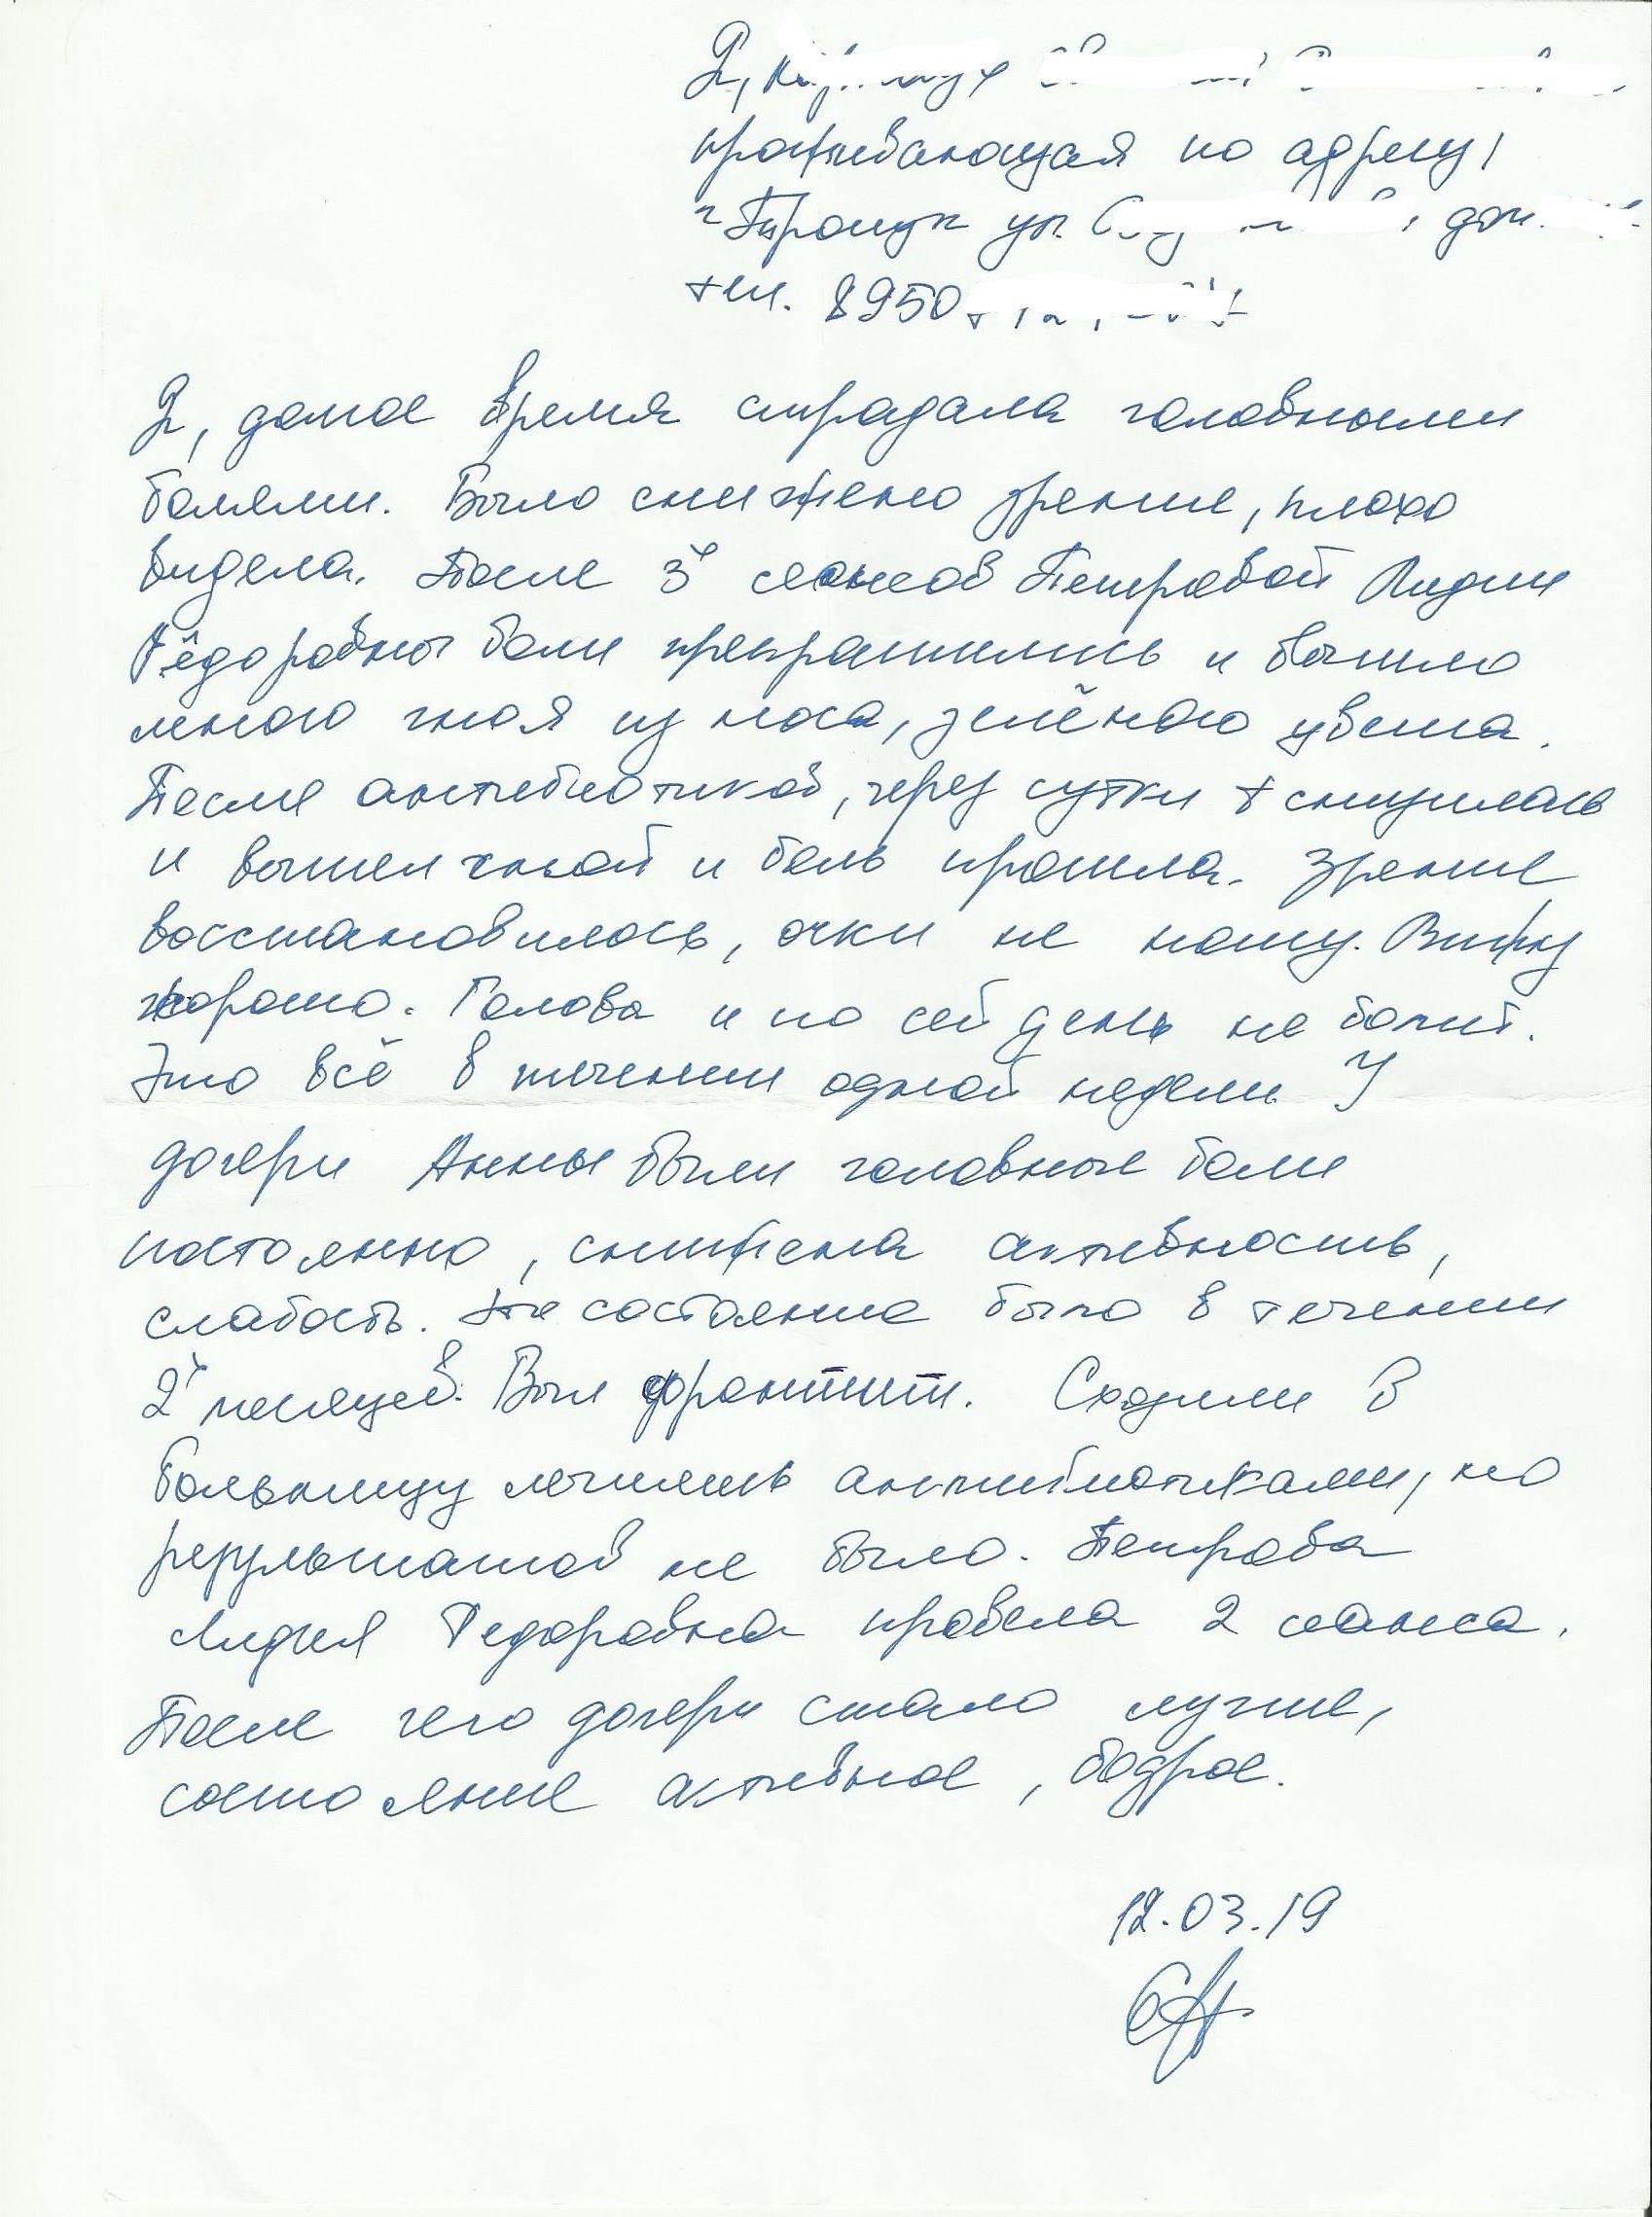 Я,
проживающая по адресу,
г Троицк ул. дом.
тел. 8950
Я, долгое время страдала головными
болями. Было снижено зрение, плохо
видела. После 3х сеансов Петровой Лидии
Фёдоровны боли прекратились и вышло
много гноя из носа, зелёного цвета.
После антибиотиков, через сутки t снизилась
и вышел гной и боль прошла. Зрение
восстановилось, очки не ношу. Вижу
хорошо. Голова и по сей день не болит.
Это всё в течении одной недели У
дочери Анны были головные боли
постоянно, снижена активность,
слабость. Это состояние было в течении
2х месяцев. Был фронтит. Сходили в
больницу лечились антибиотиками, но
результатов не было. Петрова
Лидия Федоровна провела 2 сеанса.
После чего дочери стало лучше,
состояние активное, бодрое.
12.03.19